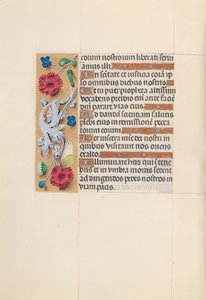 corum nostrorum liberati serui
amus illi
In sanctitate et iusticia cora ipso
omnibus diebus nostris
Et tu puer propheta altissimi
vocaberis preibis em ante facie
dni parare vias eius
Ad dandā scientiam salutis
plebi eius in remissione pecca
torum eorum
Per viscera mie dei nostri in
quibus visitauit nos oriens
ex alto
Illuminare his qui i tene
bris et in vmbra mortis sedent
ad dirigendos pedes nostros in
viam pacis